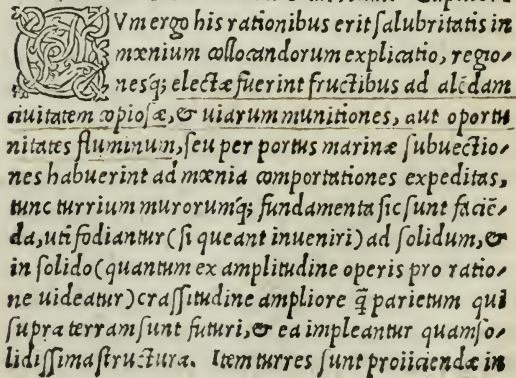 CVm ergo his rationibus erit salubritatis in
mœnium collocandorum explicatio, regio-
nesq; electæ fuerint fructibus ad alēdam
ciuitatem copiosæ, & uiarum munitiones, aut oportu
nitates fluminum, seu per portus marinæ subuectio-
nes habuerint ad mœnia comportationes expeditas,
tunc turrium murorumq; fundamenta sic sunt faciē-
da, uti fodiantur (si queant inueniri) ad solidum, &
in solido (quantum ex amplitudine operis pro ratio-
ne uideatur) crassitudine ampliore q̄ parietum qui
supra terram sunt futuri, & ea impleantur quamso-
lidissima structura. Item turres sunt proiiciendæ in